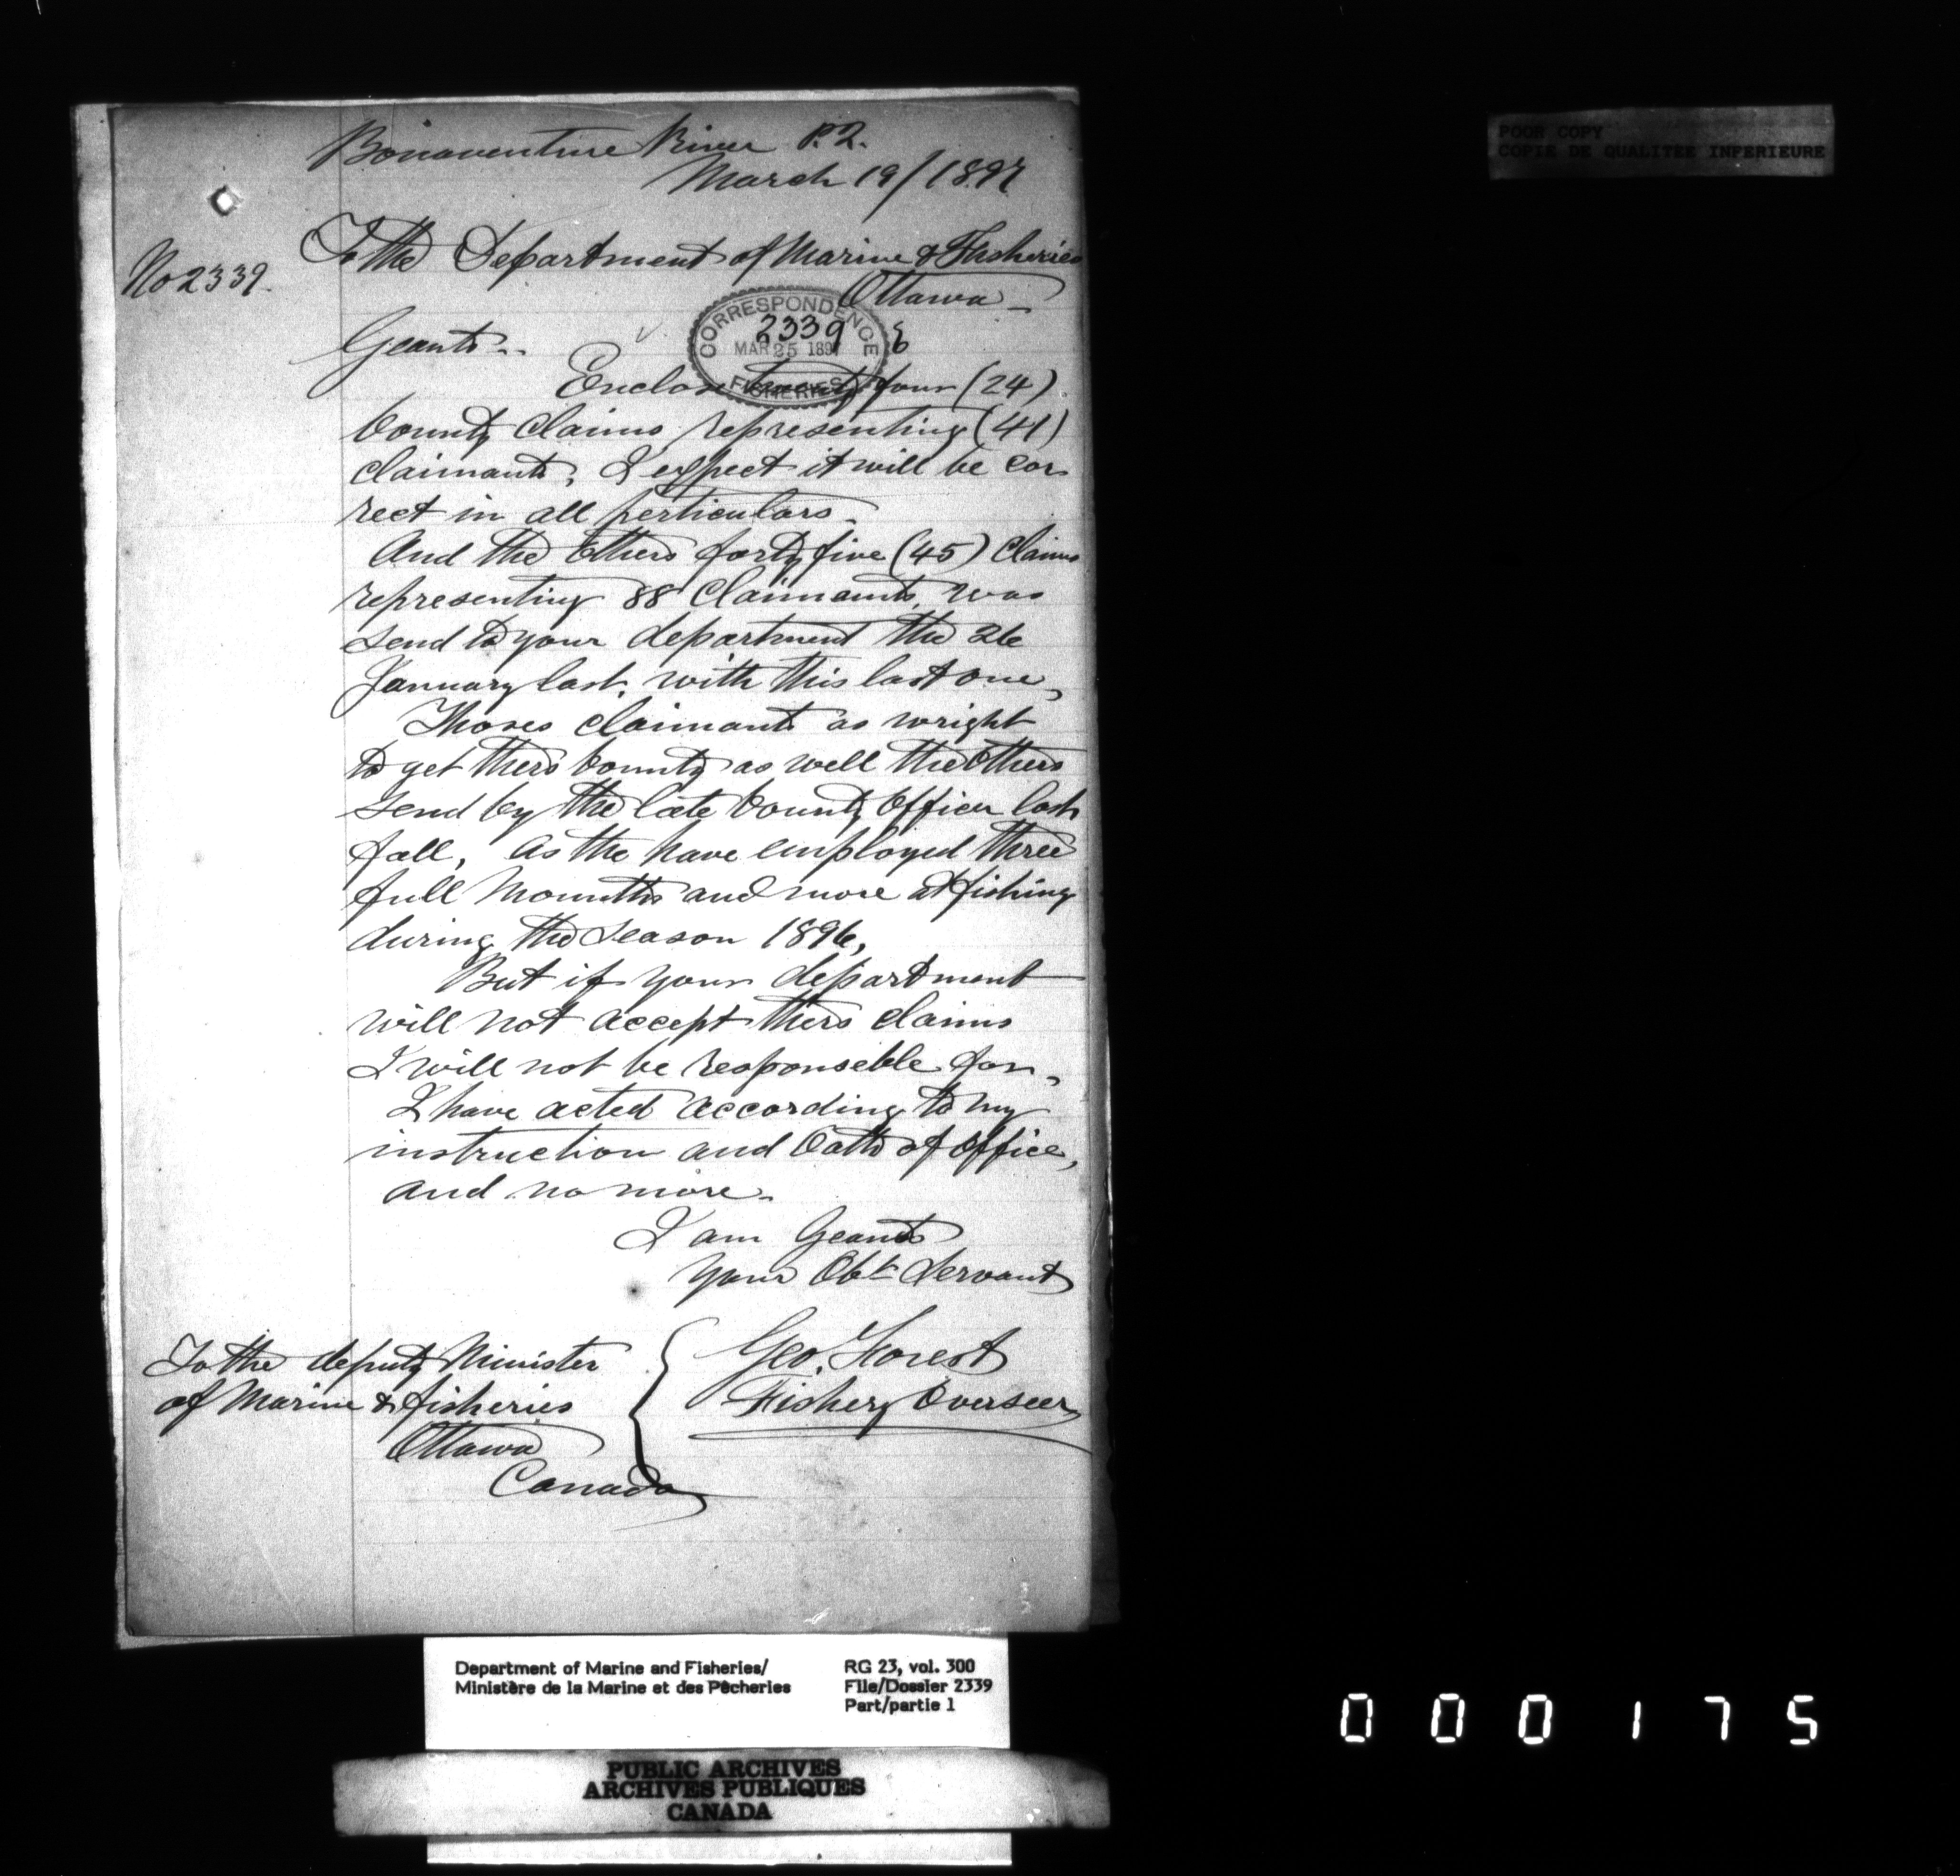 Bonaventure River P.Q.
March 19/1897
To the Department of Marine & Fisheries
No 2339.
Ottawa
CORRESPONDENCE
2339
MAR 25 1897
FISHERIES
Geants..
Enclose twenty four (24)
bounty claims representing (41)
claimants, I expect it will be cor
rect in all perticulars.
And the others forty five (45) claims
representing 88 claimants, was
send to your department the 26
January last, with this last one,
Thoses claimants as wright
to get thers bounty as well the others
send by the late bounty officer last
fall, as the have employed three
full Mounths and more at fishing
during the season 1896,
But if your department
will not accept thers claims
I will not be responseble for,
I have acted according to my
instruction and Oath of office,
and no more.
I am Geants
Your Obt Servant
Geo. Forest
Fishery Overseer
To the deputy Minister
of Marine & fisheries
Ottawa
Canada
POOR COPY
COPIE DE QUALITEE INFERIEURE
Department of Marine and Fisheries/
Ministère de la Marine et des Pêcheries
RG 23, vol. 300
File/Dossier 2339
Part/partie 1
PUBLIC ARCHIVES
ARCHIVES PUBLIQUES
CANADA
000175